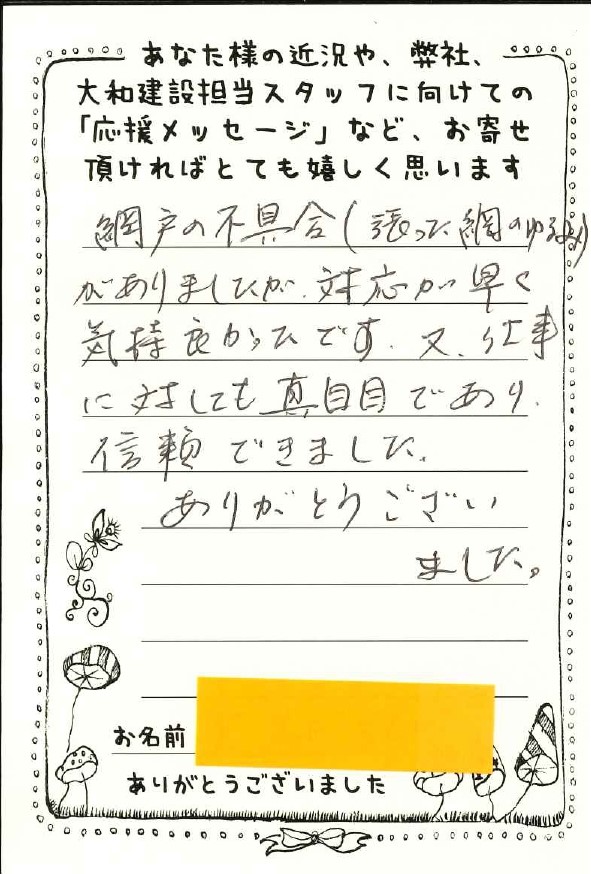 あなた様の近況や、弊社、
大和建設担当スタッフに向けての
「応援メッセージ」など、お寄せ
頂ければとても嬉しく思います
網戸の不具合(張った網のゆるみ)
がありましたが、対応が早く
気持良かったです。又、仕事
に対しても真自目であり、
信頼できました。
ありがとうござい
ました。
お名前
ありがとうございました